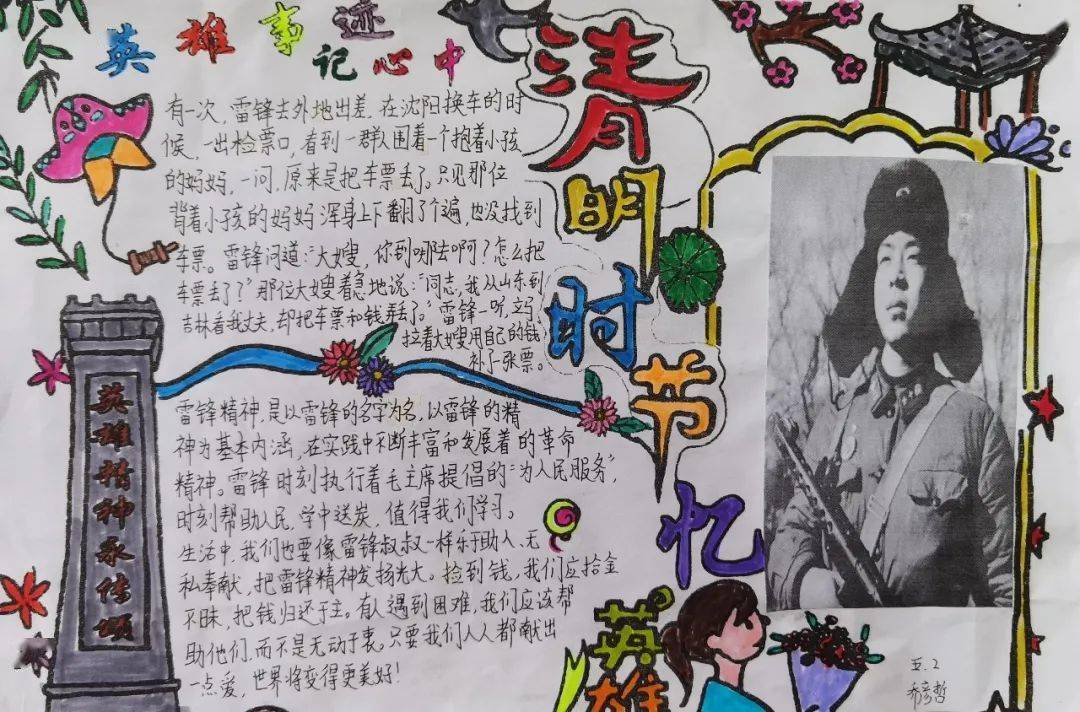 英雄事迹
记心中
清明时节
忆
英雄
有一次,雷锋去外地出差,在沈阳换车的时
候,一出检票口,看到一群人围着一个抱着小孩
的妈妈,一问,原来是把车票丢了。只见那位
背着小孩的妈妈浑身上下翻了个遍,也没找到
车票。雷锋问道:“大嫂,你到哪去啊?怎么把
车票丢了?”那位大嫂着急地说:“同志,我从山东到
吉林看我丈夫,却把车票和钱弄丢了。”雷锋一听,立马
拉着大嫂用自己的钱
补了一张票。
雷锋精神,是以雷锋的名字为名,以雷锋的精
神为基本内涵,在实践中不断丰富和发展着的革命
精神。雷锋时刻执行着毛主席提倡的“为人民服务”,
时刻帮助人民,学中送炭,值得我们学习。
生活中,我们也要像雷锋叔叔一样乐于助人、无
私奉献,把雷锋精神发扬光大。捡到钱,我们应拾金
不昧,把钱归还于主。有人遇到困难,我们应该帮
助他们,而不是无动于衷。只要我们人人都献出
一点爱,世界将变得更美好!
英雄精神永传颂
五.2
乔彦哲